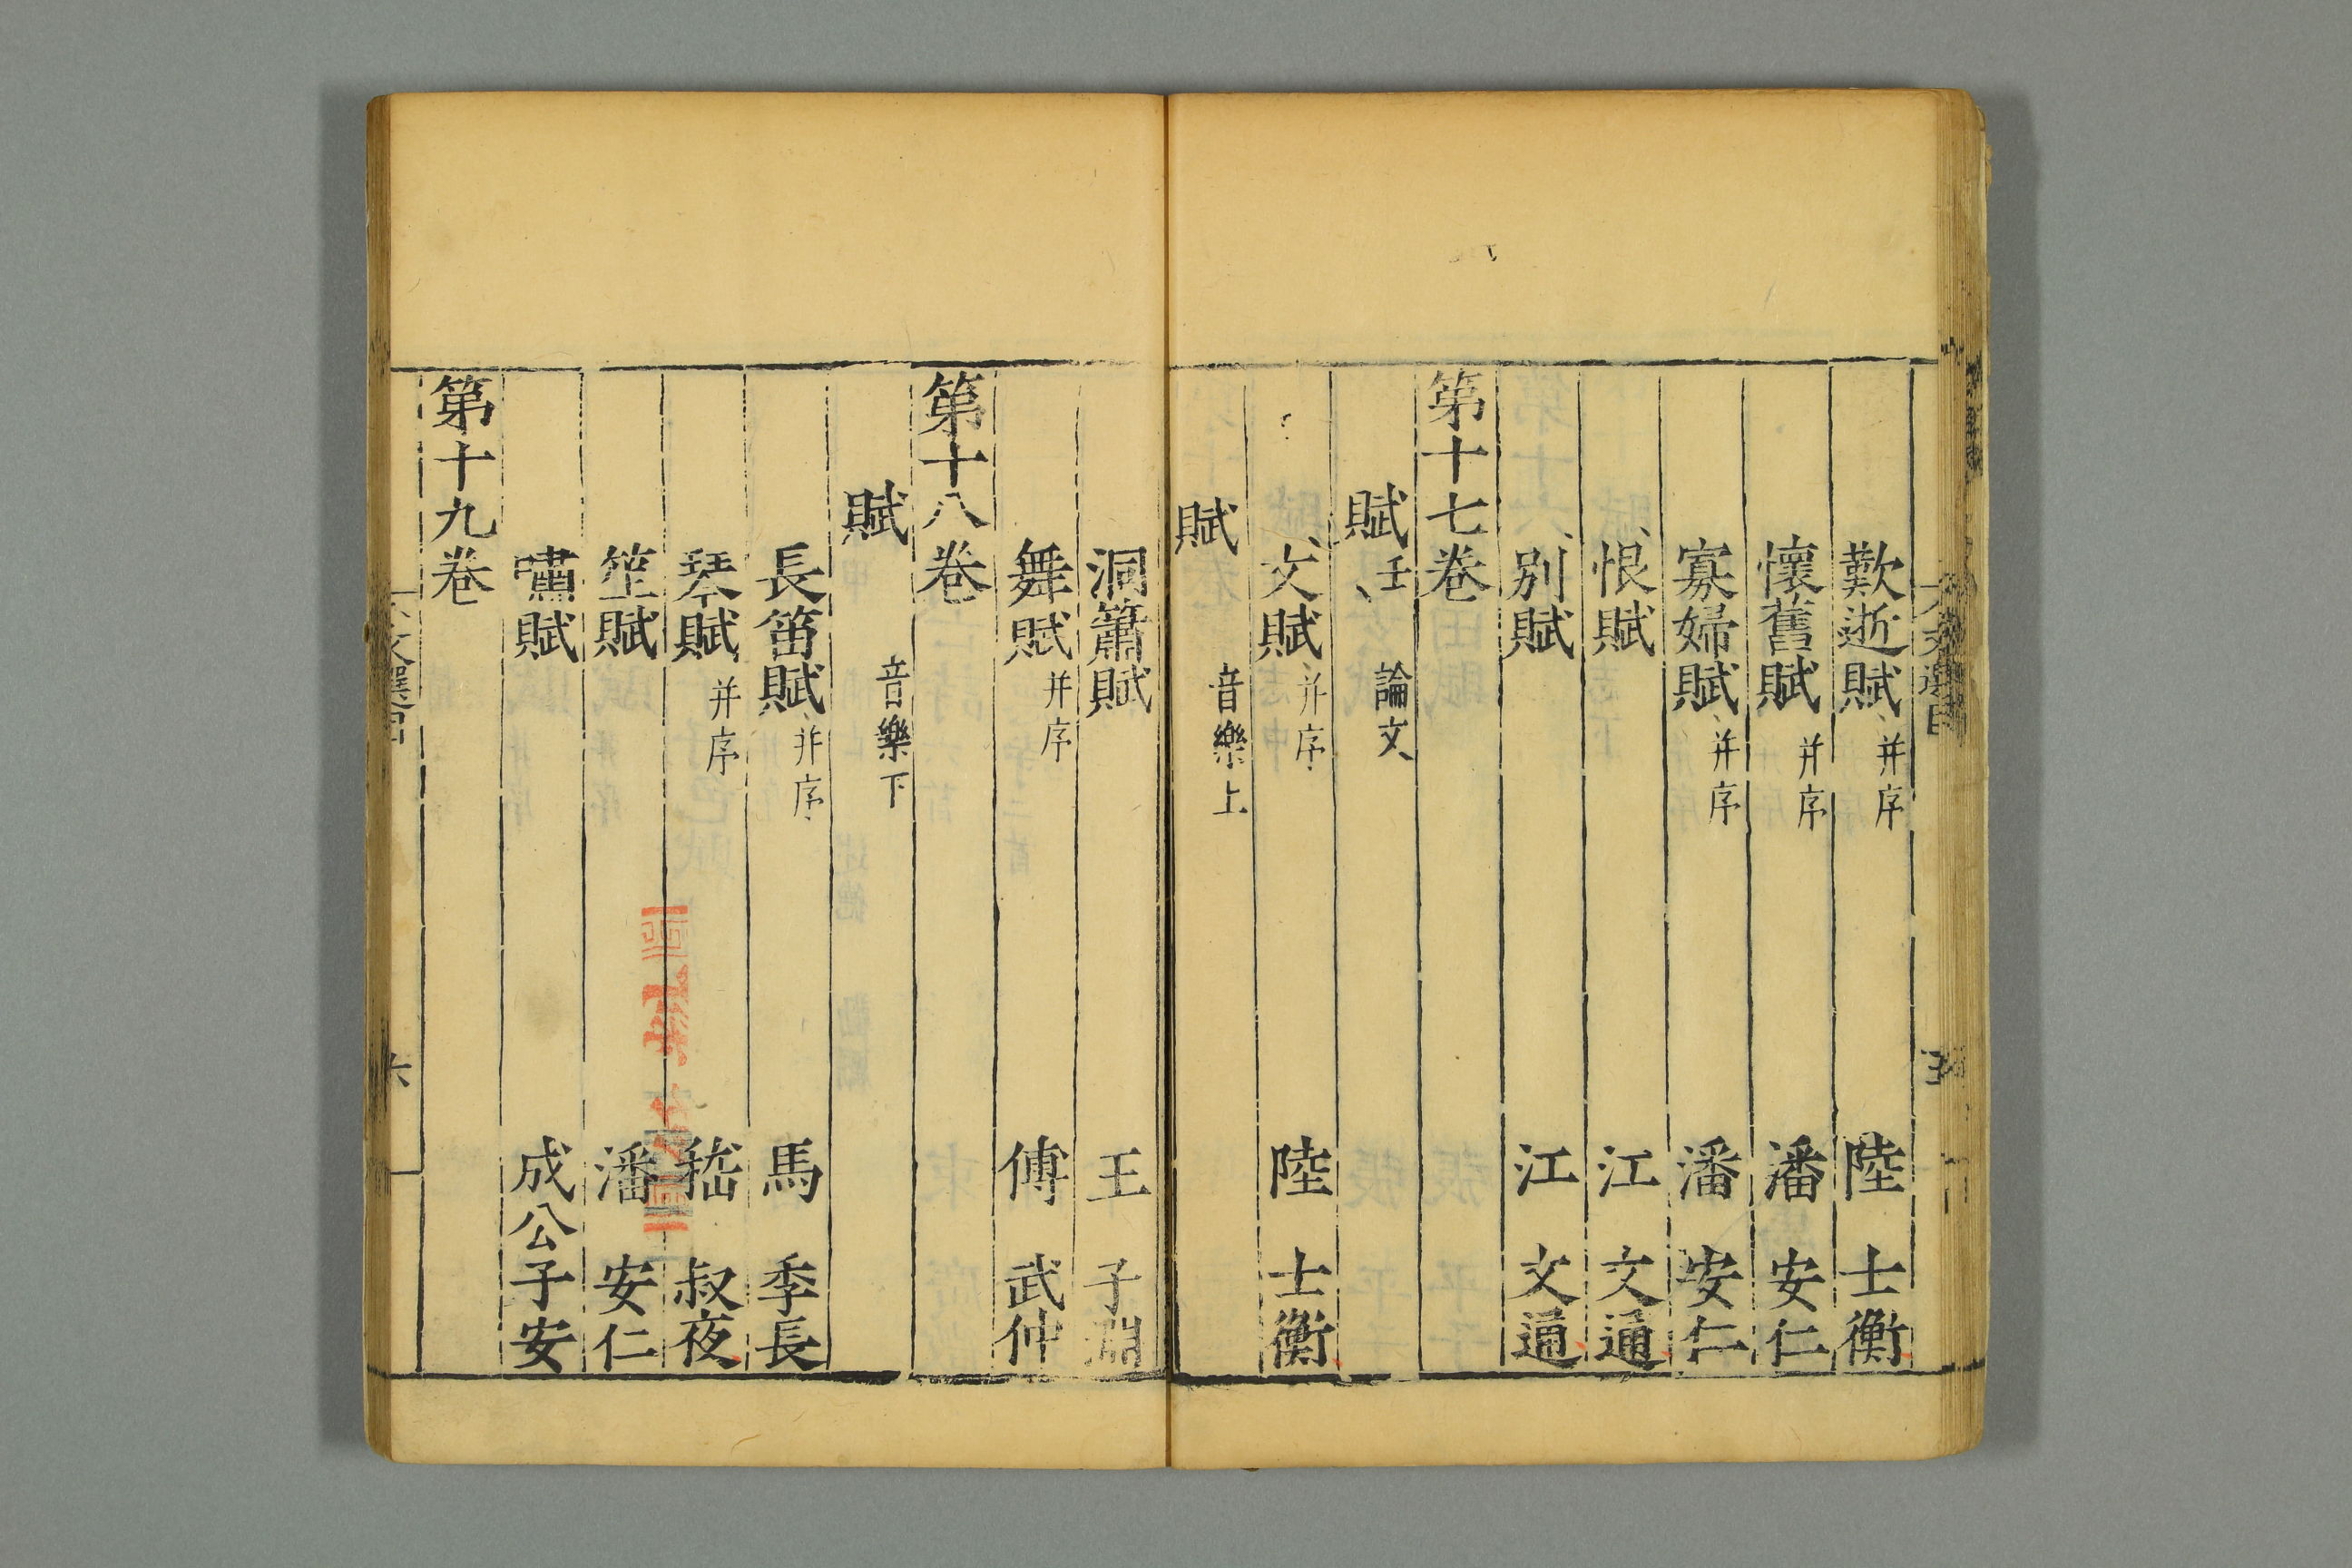 歎逝賦并序 陸士衡
懷舊賦并序 潘安仁
寡婦賦并序 潘安仁
恨賦 江文通
別賦 江文通
第十七卷
賦壬 論文
文賦并序 陸士衡
賦 音樂上
洞簫賦 王子淵
舞賦并序 傅武仲
第十八卷
賦 音樂下
長笛賦并序 馬季長
琴賦并序 嵇叔夜
笙賦 潘安仁
嘯賦 成公子安
第十九卷
六